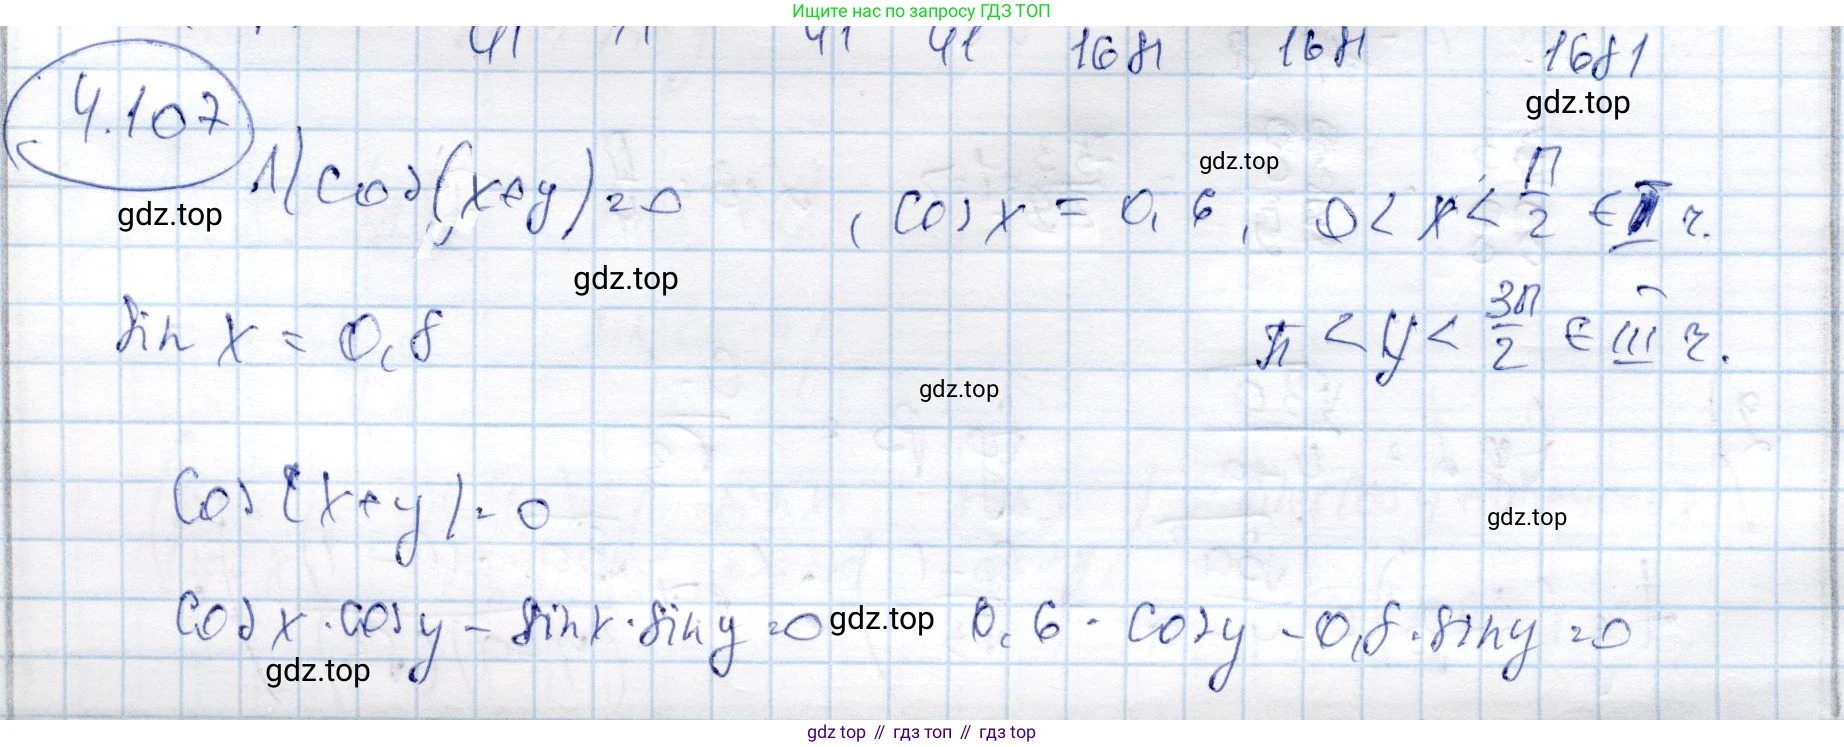 Ищите нас по запросу ГДЗ ТОП
41 41 41 1681 1681 1681
gdz.top
4.107
gdz.top
1) cos(x+y)=0, cos x = 0,6, 0<x<П/2 ∈ I ч.
gdz.top
gdz.top
sin x = 0,8
π<y<3П/2 ∈ III ч.
gdz.top
cos(x+y)=0
gdz.top
cos x · cos y - sin x · sin y = 0
gdz.top
0,6 · cos y - 0,8 · sin y = 0
gdz.top
gdz top // гдз топ // гдз top